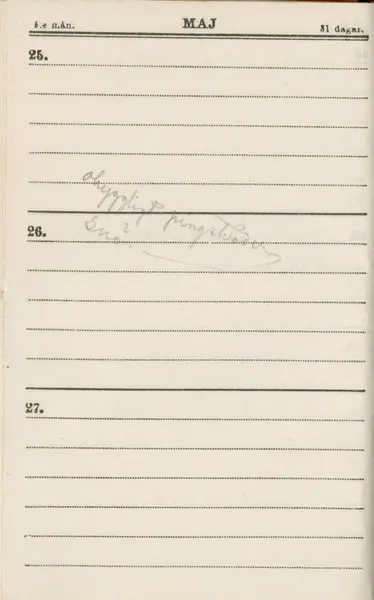 5.e mån. MAJ 31 dagar.
25.
obyggligt pingstväder
Snö?
26.
27.